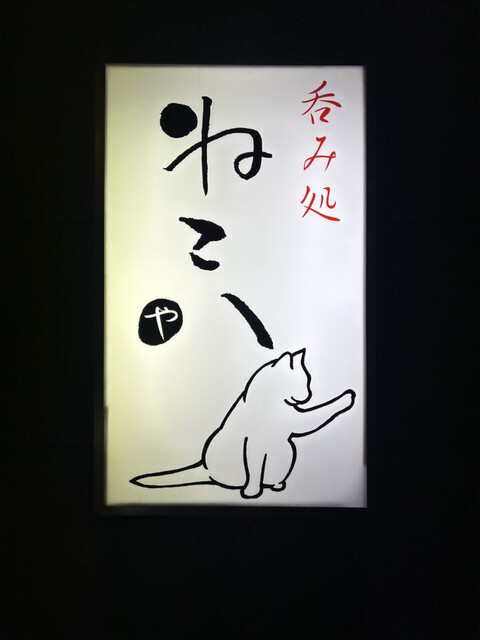 呑み処
ねこ
や